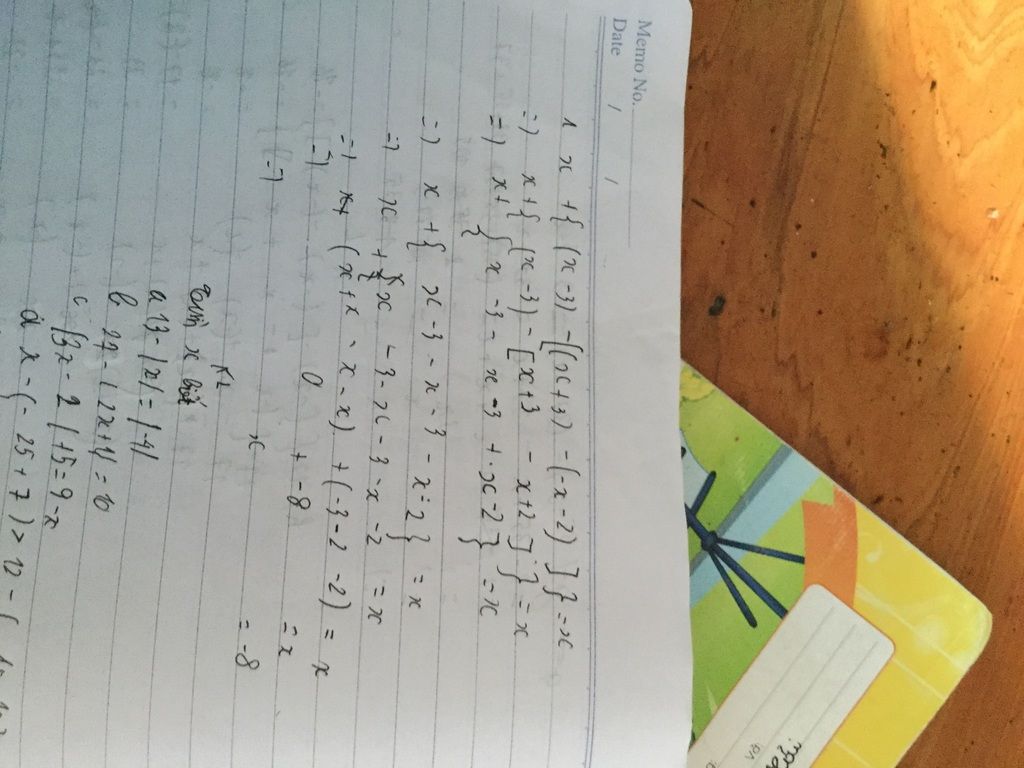 Memo No.
Date / /
1 x + { (x - 3) - [(x + 3) - (-x - 2) ] } = x
=) x + { (x - 3) - [x + 3 - x + 2 ] } = x
=) x + { x - 3 - x - 3 + x - 2 } = x
=) x + { x - 3 - x - 3 - x - 2 } = x
=) x + { x - 3 - x - 3 - x - 2 = x
=) x + (x + x - x - x) + (-3 - 2 - 2) = x
(=) 0 + -8 = x
(=) x = -8
KL
x
a 13 - |x| = |-4|
b 24 - | 2x + 4| = 10
c |9x - 2 | + 5 = 9 - x
d x - (- 25 + 7 ) > 12 - (
với